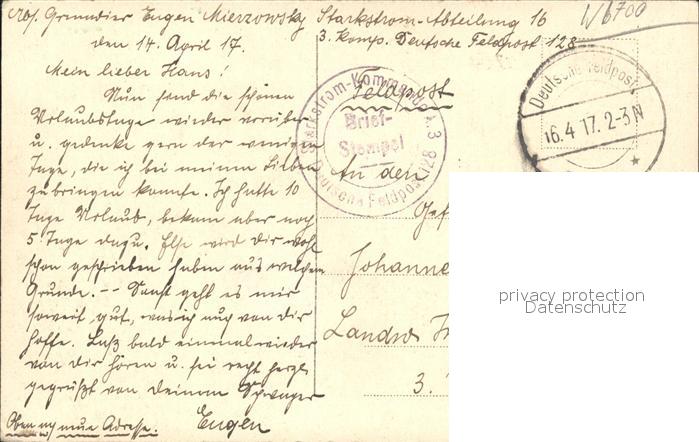 Abs. Grenadier Eugen Mierzowsky Starkstrom-Abteilung 16
3. Komp. Deutsche Feldpost 128
W 6700
den 14. April 17.
Mein lieber Hans!
Nun sind die schönen
Urlaubstage wieder vorüber
u. gedenke gern der wenigen
Tage, die ich bei meinen Lieben
zubringen konnte. Ich hatte 10
Tage Urlaub, bekam aber noch
5 Tage dazu. Else wird dir wohl
schon geschrieben haben aus welchem
Grunde. -- Sonst geht es mir
soweit gut, was ich auch von dir
hoffe. Laß bald einmal wieder
von dir hören u. sei recht herzl.
gegrüßt von deinem Schwager
Eugen
Oben neue Adresse.
Feldpost
Starkstrom-Kommando 3
Brief-
Stempel
Deutsche Feldpost 128
Deutsche Feldpost
16.4.17. 2-3 N
An den
Gef
Johanne
Landw. In
3.
privacy protection
Datenschutz